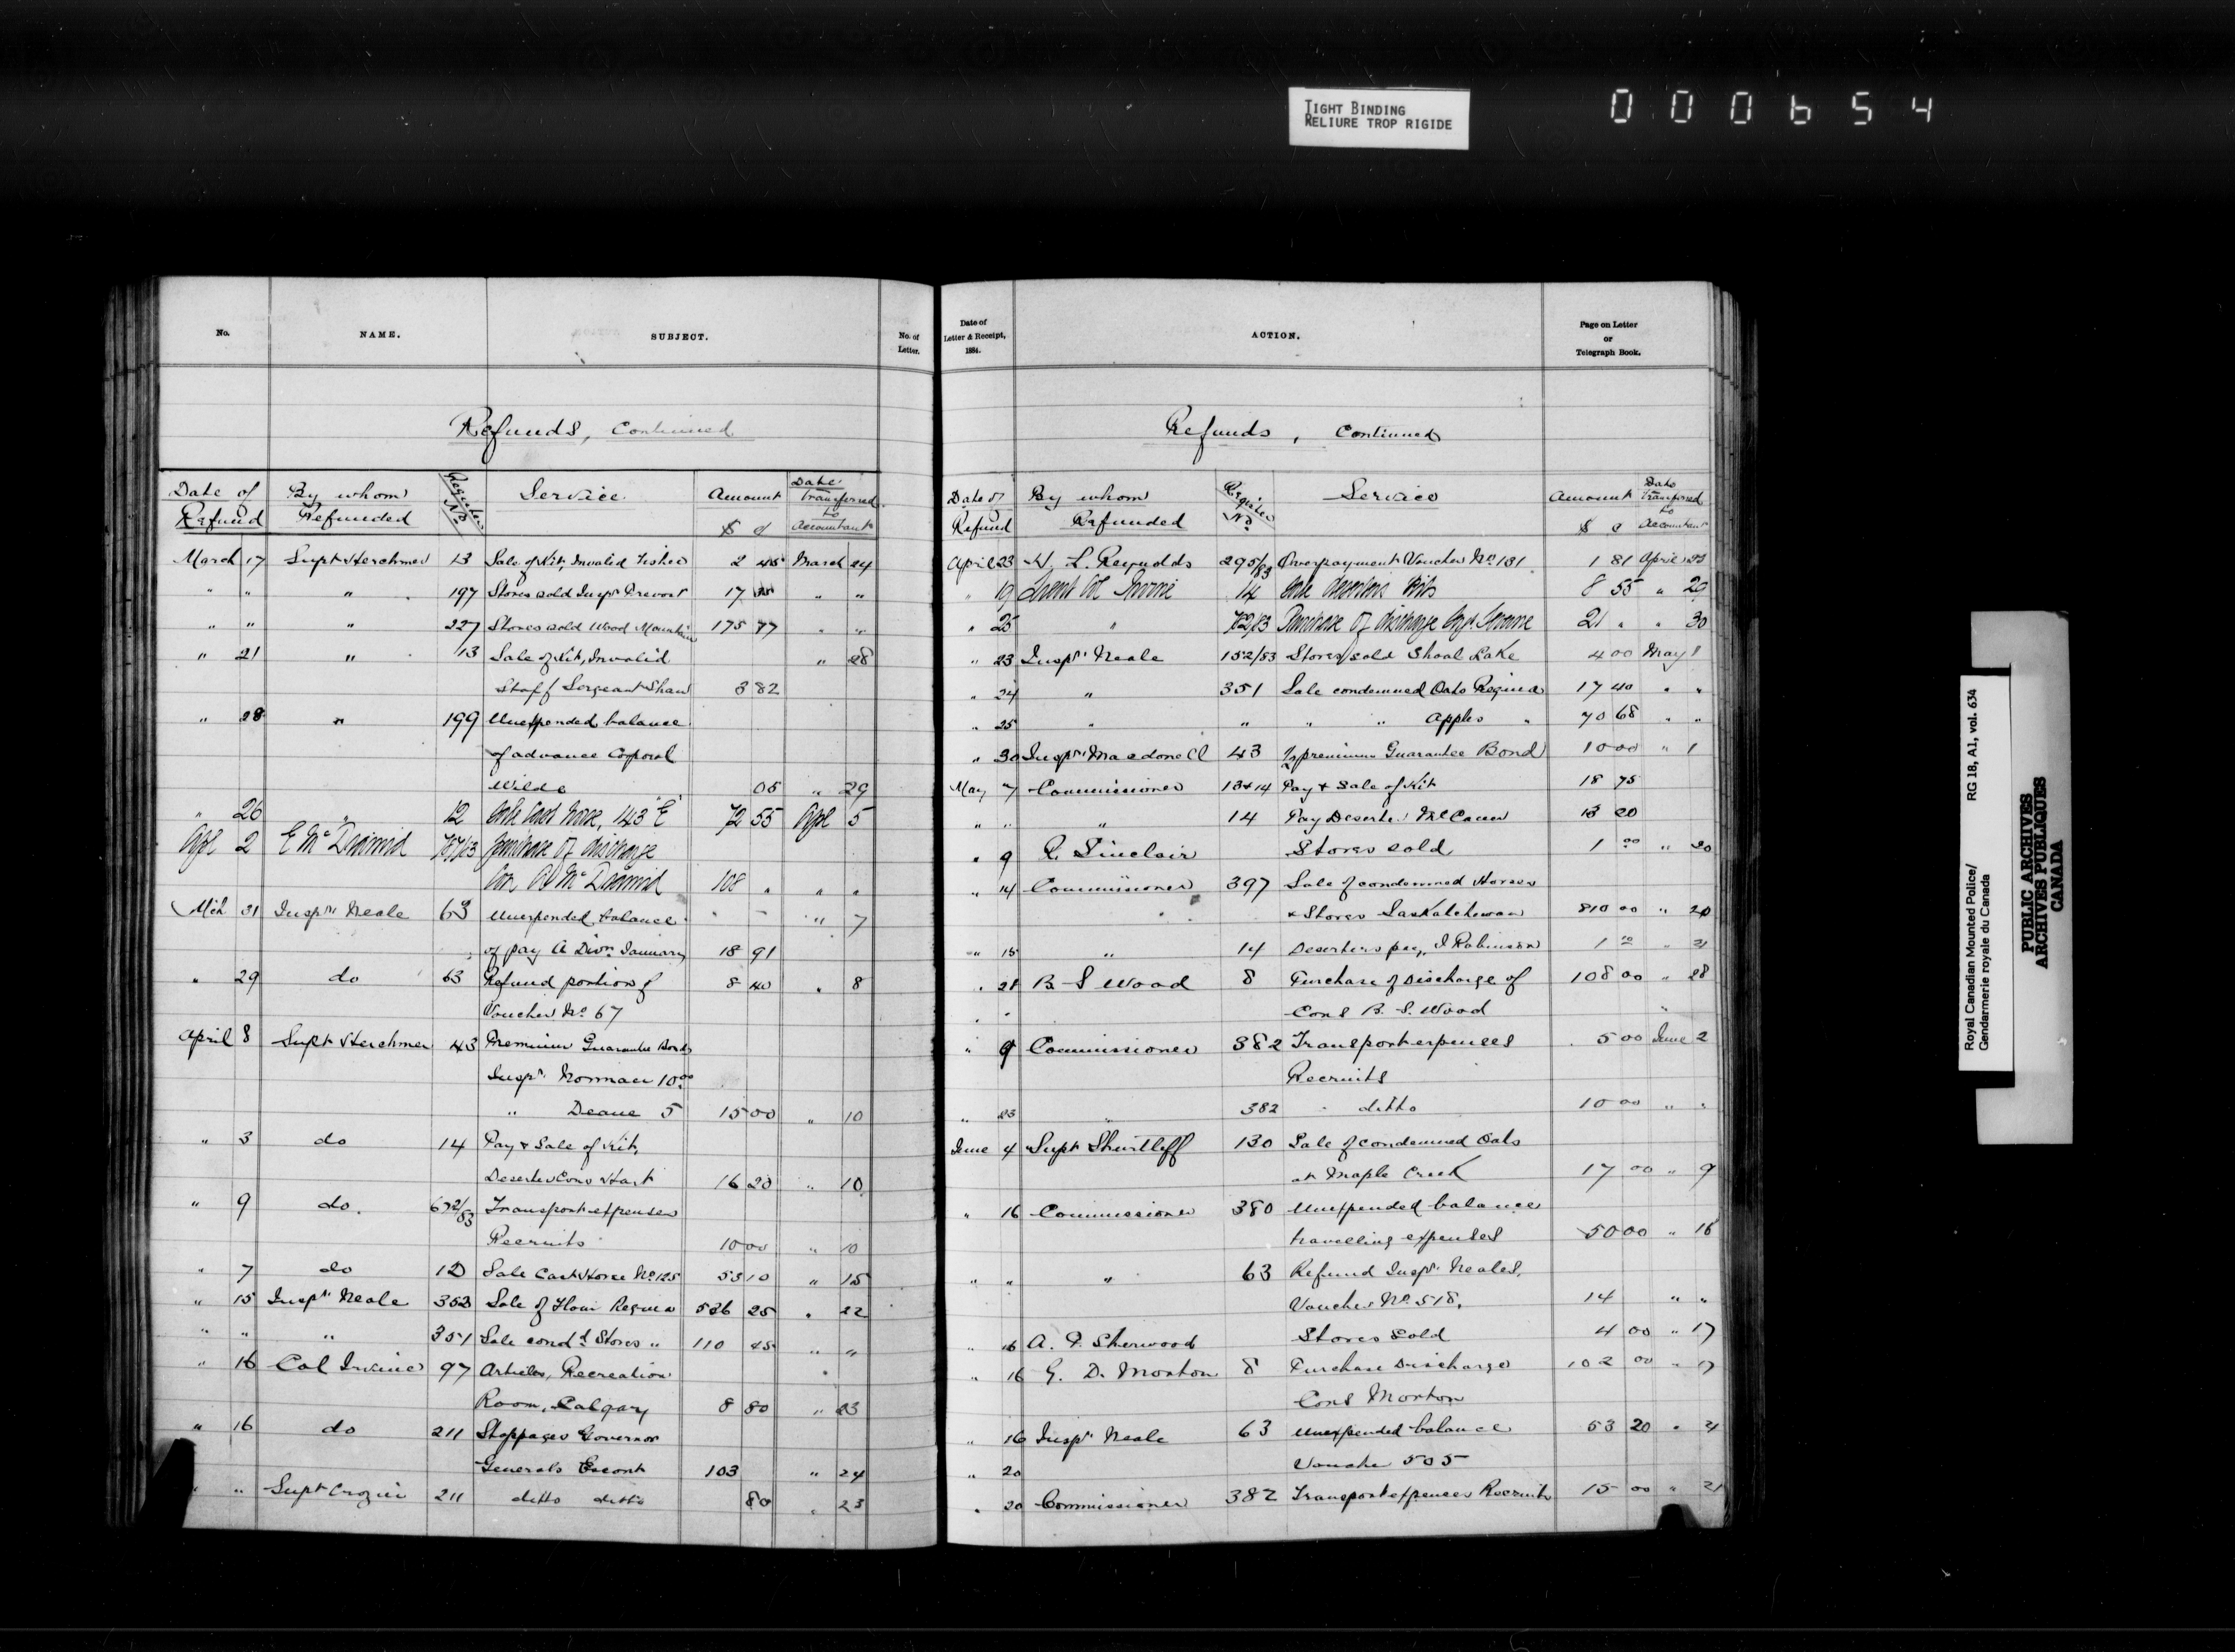 TIGHT BINDING
RELIURE TROP RIGIDE
000654
No. NAME. SUBJECT. No. of Letter.
Refunds, Continued
Date of Refund By whom Refunded Register No. Service Amount $ c Date transferred to Accountant
March 17 Supt Herchmer 13 Sale of Kit, Invalid Fisher 2 45 March 24
" " " 197 Stores sold Inspr Prevost 17 " "
" " " 227 Stores sold Wood Mountain 175 77 " "
" 21 " 13 Sale of Kit, Invalid " 28
Staff Sergeant Shaw 3 82
" 28 " 199 Unexpended balance
of advance Corporal
Wilde 05 " 29
" 26 " 12 Sale Cast Horse, 143 "E" 72 55 Apl 5
Apl 2 E McDiarmid purchase of discharge
Con McDiarmid 108 " " "
Mch 31 Inspr Neale 63 Unexpended balance " 7
of pay A Divn January 18 91
" 29 do 63 Refund portion of 8 40 " 8
Voucher No 67
April 8 Supt Herchmer 43 Premium Guarantee Bonds
Inspr Norman 10.00
" Deane 5 15 00 " 10
" 3 do 14 Pay & Sale of Kit,
Deserter Cons Hart 16 20 " 10
" 9 do. 672/83 Transport expenses
Recruits 10 00 " 10
" 7 do 12 Sale Cast Horse No 125 55 10 " 15
" 15 Inspr Neale 352 Sale of Flour Regina 526 25 " 22
" " " 351 Sale cond'd Stores " 110 45 " "
" 16 Col Irvine 97 Articles, Recreation
Room, Calgary 8 80 " 23
" 16 do 211 Stoppages Governor
Generals Escort 103 " 24
" " Supt Crozier 211 ditto ditto 80 " 23
Date of Letter & Receipt, 1884. ACTION. Page on Letter or Telegraph Book.
Refunds, Continued
Date of Refund By whom Refunded Register No. Service Amount $ c Date transferred to Accountant
April 23 H. L. Reynolds 295/83 Overpayment Voucher No 181 1 81 April 25
" 19 Lieut Col Irvine 14 Sale Deserters Kits 8 55 " 29
" 25 " Purchase of discharge 21 " " 30
" 23 Inspr Neale 152/83 Stores sold Shoal Lake 4 00 May 1
" 24 " 351 Sale condemned Oats Regina 17 40 " "
" 25 " " " " Apples " 70 68 " "
" 30 Inspr Macdonell 43 premium Guarantee Bond 10 00 " 1
May 7 Commissioner 13 & 14 Pay & Sale of Kit 18 75
" " " 14 Pay Deserter McCann 13 20
" 9 Sinclair Stores sold 1 00 " 20
" 14 Commissioner 397 Sale of condemned Horses
& Stores Saskatchewan 810 00 " 20
" 15 " 14 Deserters pay, J Robinson 1 00 " 21
" 21 B S Wood 8 Purchase of Discharge of 108 00 " 28
Cons B. S. Wood
" 9 Commissioner 382 Transport expenses 5 00 June 2
Recruits
" 23 " 382 ditto 10 00 " "
June 4 Supt Shurtleff 130 Sale of condemned Oats
at Maple Creek 17 00 " 9
" 16 Commissioner 380 Unexpended balance
travelling expenses 50 00 " 16
" " " 63 Refund Inspr Neales,
Voucher No 518, 14 " "
" 16 A. P. Sherwood Stores Sold 4 00 " 17
" 16 G. D. Morton 8 Purchase Discharge 102 00 " 17
Cons Morton
" 16 Inspr Neale 63 Unexpended balance 53 20 " 21
" 20 Voucher 505
" 20 Commissioner 382 Transport expenses Recruits 15 00 " 21
Royal Canadian Mounted Police/ RG 18, A1, vol. 634
Gendarmerie royale du Canada
PUBLIC ARCHIVES
ARCHIVES PUBLIQUES
CANADA